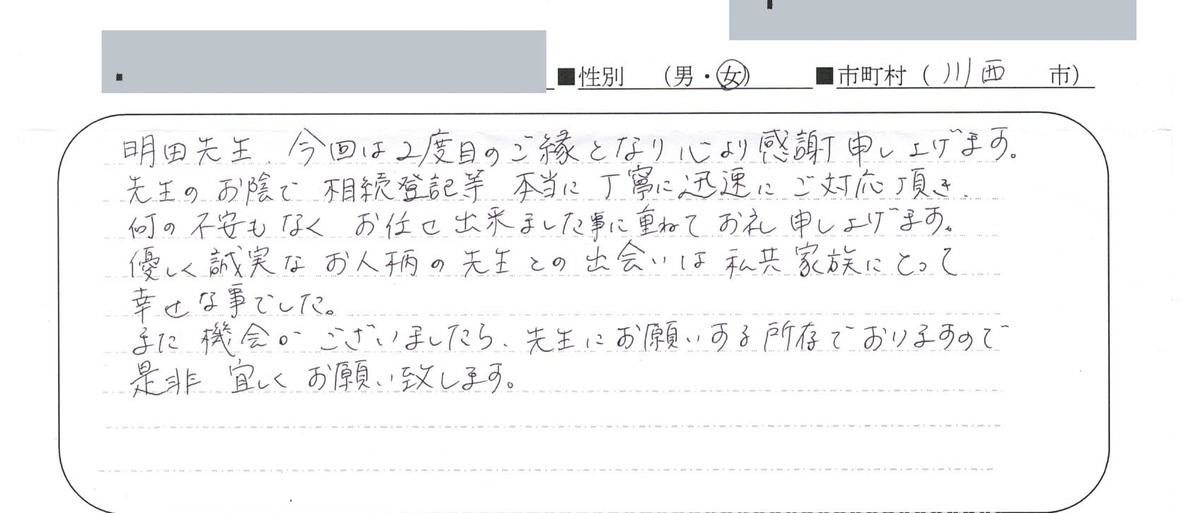 ■性別 (男・女) ■市町村 ( 川西 市)
明田先生、今回は2度目のご縁となり心より感謝申し上げます。
先生のお陰で 相続登記等 本当に丁寧に迅速にご対応頂き、
何の不安もなく お任せ出来ました事に重ねてお礼申し上げます。
優しく誠実なお人柄の先生との出会いは私共家族にとって
幸せな事でした。
また機会がございましたら、先生にお願いする所存でおりますので
是非 宜しくお願い致します。